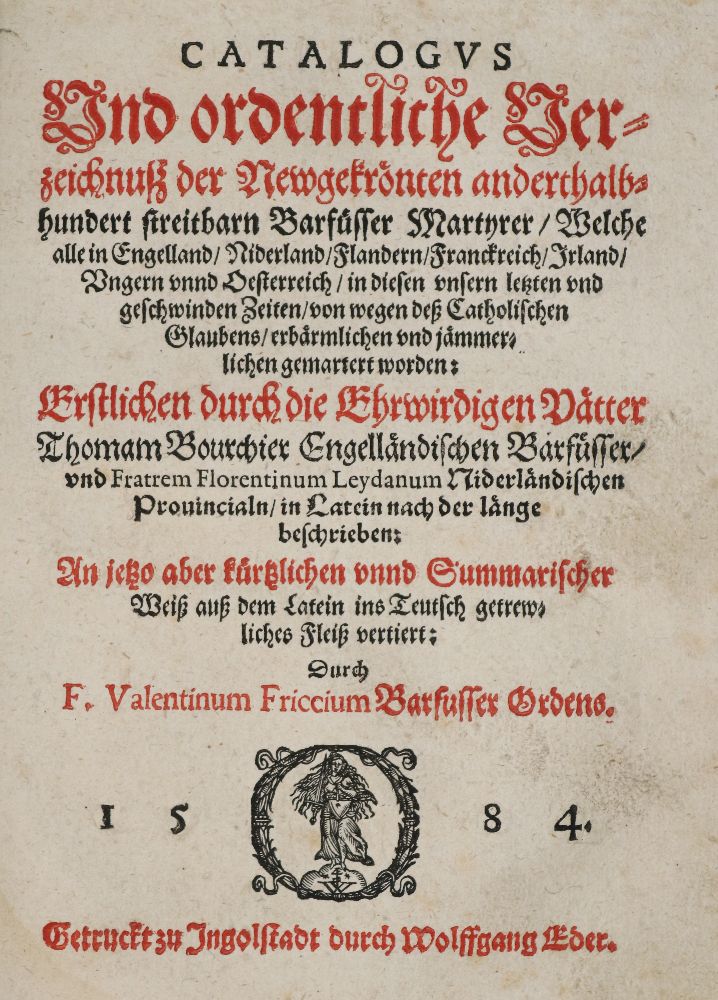 CATALOGVS
Vnd ordentliche Ver-
zeichnuß der Newgekrönten anderthalb-
hundert streitbarn Barfüsser Martyrer/ Welche
alle in Engelland/ Niderland/ Flandern/ Franckreich/ Irland/
Vngern vnnd Oesterreich/ in diesen vnsern letzten vnd
geschwinden Zeiten/ von wegen deß Catholischen
Glaubens/ erbärmlichen vnd jämmer-
lichen gemartert worden:
Erstlichen durch die Ehrwirdigen Vätter
Thomam Bourchier Engelländischen Barfüsser/
vnd Fratrem Florentinum Leydanum Niderländischen
Prouincialn/ in Latein nach der länge
beschrieben:
An jetzo aber kürtzlichen vnnd Summarischer
Weiß auß dem Latein ins Teutsch getrew-
liches Fleiß vertiert:
Durch
F. Valentinum Friccium Barfusser Ordens.
1584.
Getruckt zu Ingolstadt durch Wolffgang Eder.